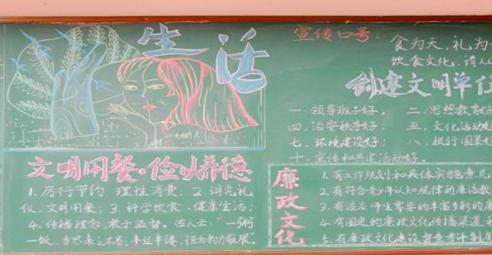 生活
文明用餐·俭以养德
1.厉行节约 理性消费；2.讲究礼
仪，文明用餐；3.科学饮食，健康生活；
4.传播理念，敢于监督。古人云：“一粥
一饭，当思来之不易；半丝半缕，恒念物力维艰。
宣传口号：
食为天，礼为
饮食文化，请从
创建文明单位
一、领导班子好； 二、思想教育好
四、治安秩序好； 五、文化活动好
七、环境建设好； 八、执行国策
十、宣传和共建活动好。
廉政文化
1.有工作规划和具体实施意见
2.有符合青少年认知规律的廉洁教
3.有适应师生需要的丰富多彩的廉
4.有固定的廉政文化传播渠道
5.有廉政文化建设